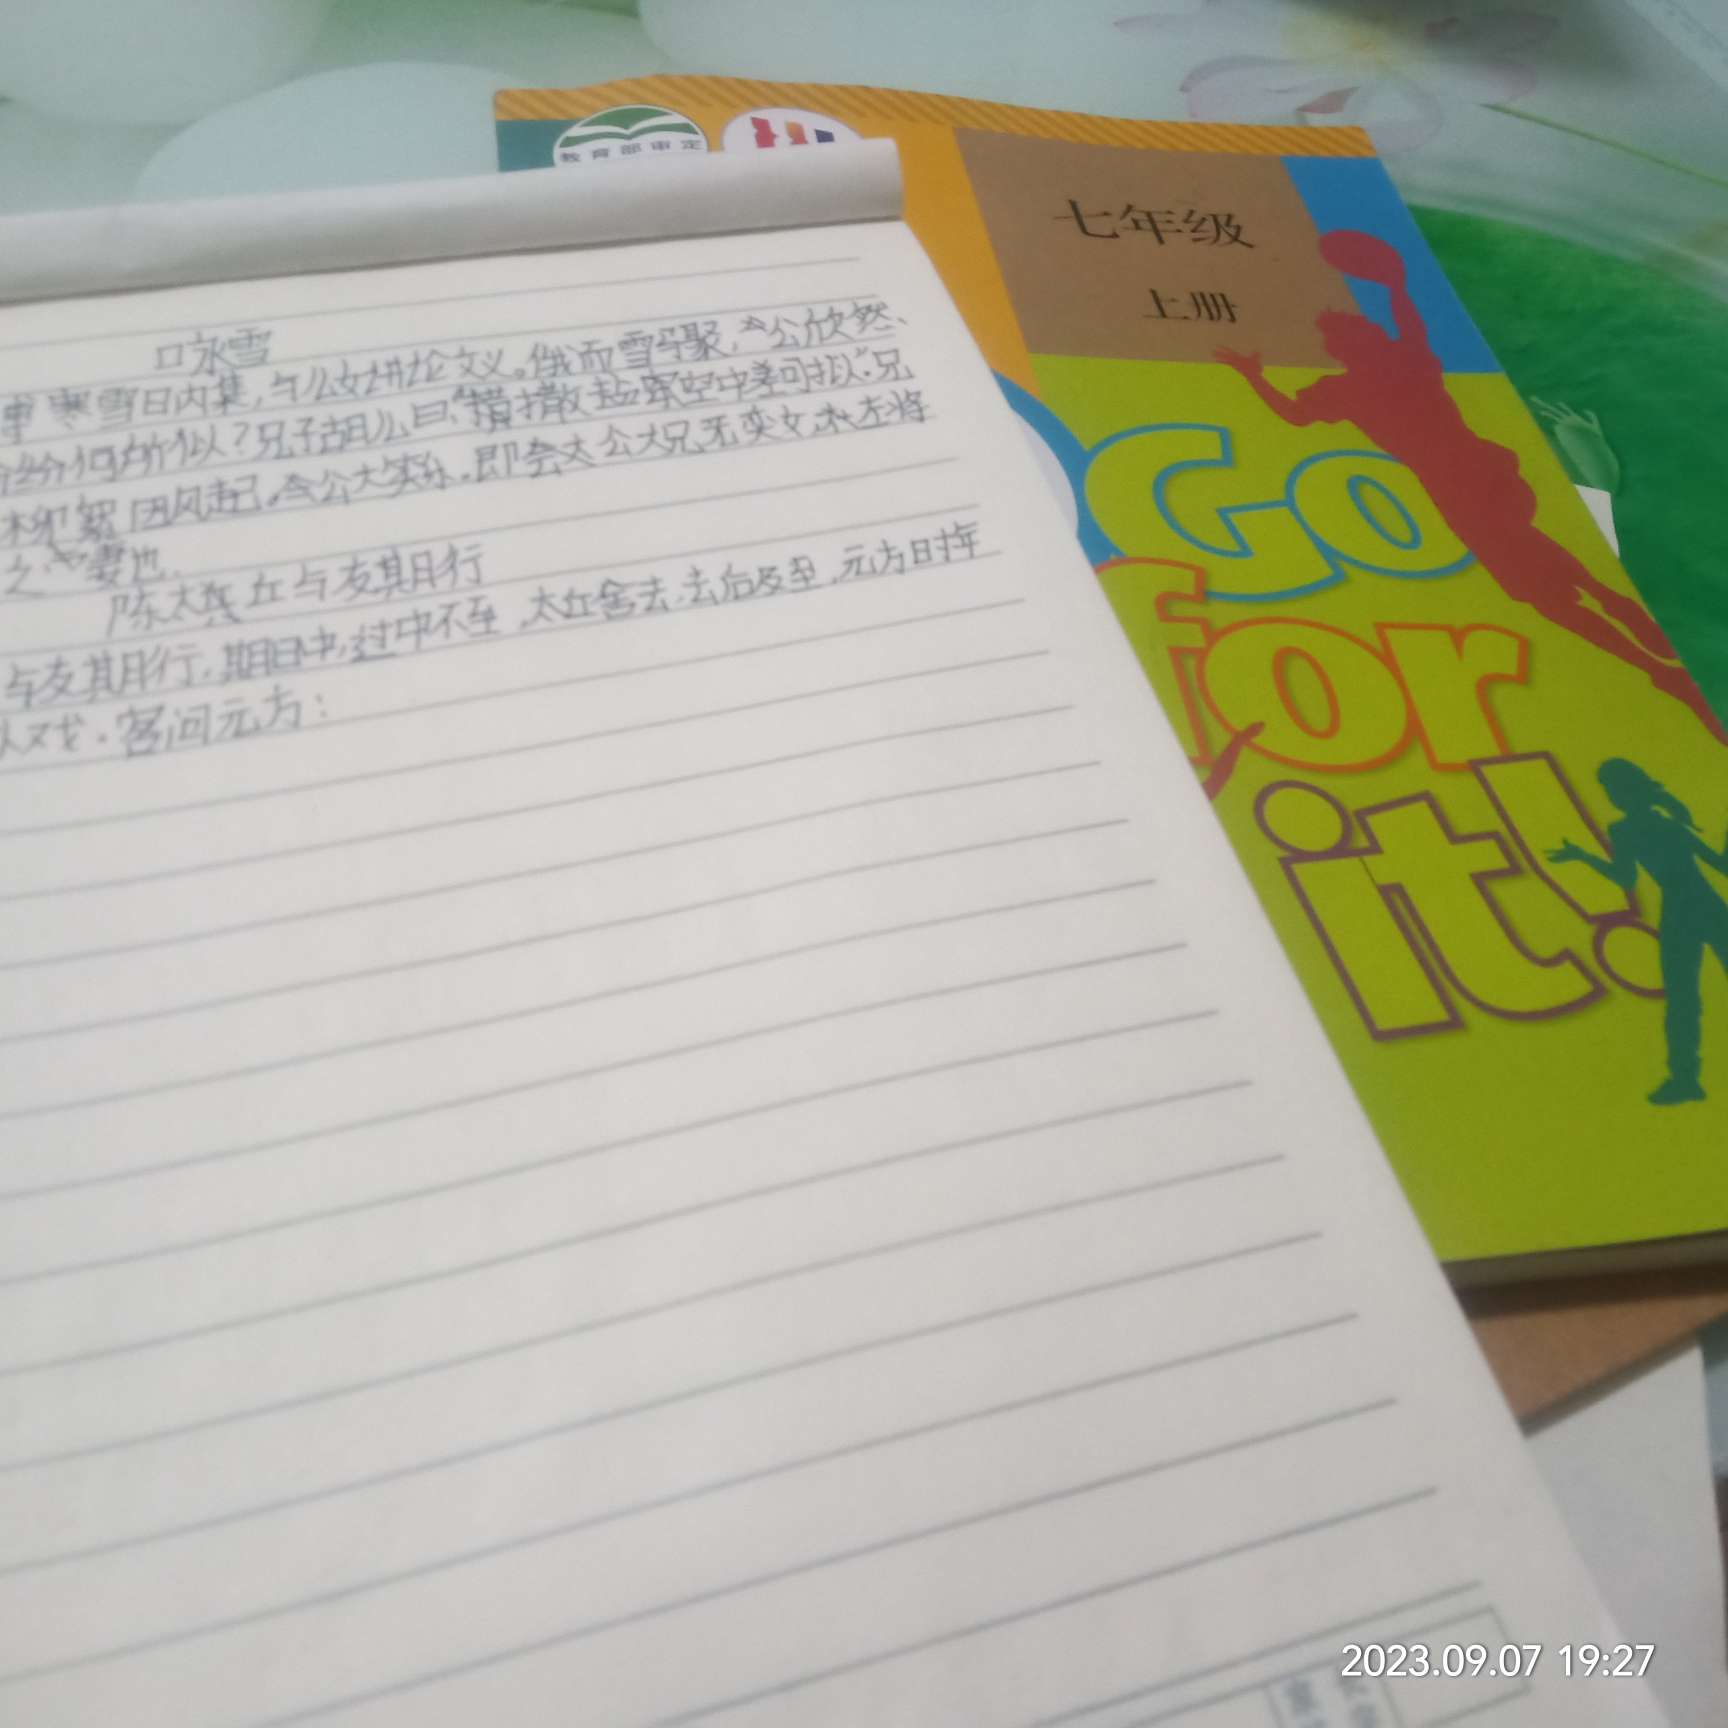 教育部审定
七年级
上册
Go
for
it!
咏雪
寒雪日内集,与儿女讲论文义。俄而雪骤,公欣然
纷何所似?兄子胡儿曰,撒盐空中差可拟."兄
柳絮因风起.公大笑乐.即公大兄无奕女,左将
之妻也.
陈太丘与友期行
与友期行,期日中,过中不至,太丘舍去.去后乃至,元方时年
戏.客问元方:
2023.09.07 19:27